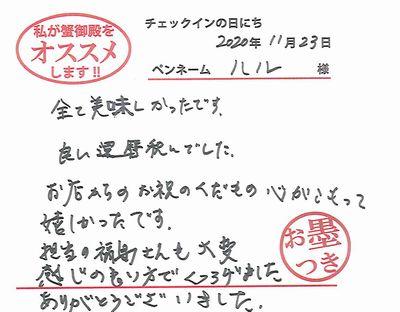 私が蟹御殿を
オススメ
します!!
チェックインの日にち
2020年 11月23日
ペンネーム ハル 様
全て美味しかったです。
良い還暦祝いでした。
お店からのお祝のくだもの心がこもって
嬉しかったです。
担当の福島さんも大変
感じの良い方でくつろげました
ありがとうございました。
お墨
つき